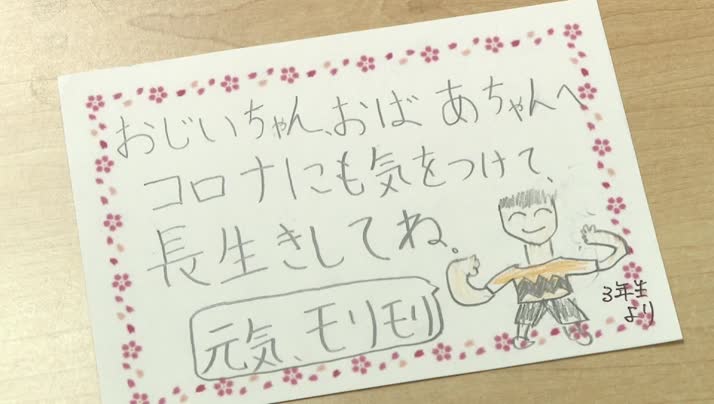 おじいちゃん、おばあちゃんへ
コロナにも気をつけて、
長生きしてね。
元気、モリモリ
3年生
より